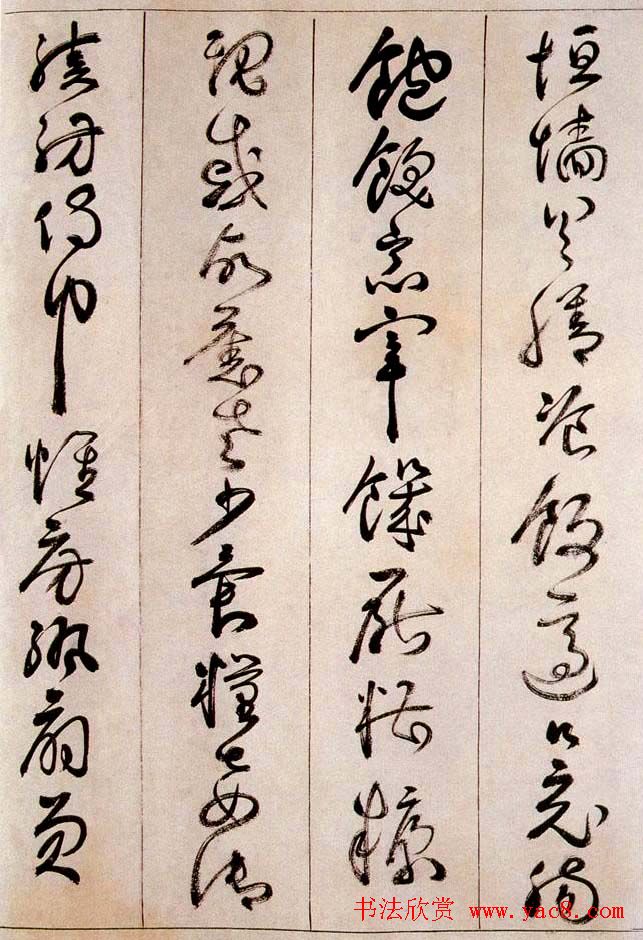 垣墻具膳飡飯適口充腸
飽飫烹宰饑厭糟糠
親戚故舊老少異糧妾御
績紡侍巾帷房紈扇員
书法欣赏 www.yac8.com